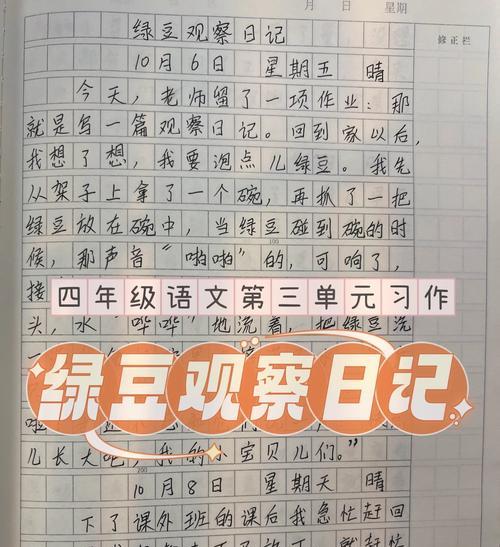 月 日 星期
修正栏
绿豆观察日记
10月6日 星期五 晴
今天,老师留了一项作业:那
就是写一篇观察日记。回到家以后,
我想了想,我要泡点儿绿豆。我先
从架子上拿了一个碗,再抓了一把
绿豆放在碗中,当绿豆碰到碗的时
100
候,那声音“啪啪”的,可响了,
接
四年级语文第三单元习作
头,水“哗哗”地流着,把绿豆洗
绿豆观察日记
啦
儿长大吧,我的小宝贝儿们。”
200
10月8日 星期天 晴
下了课外班的课后我急忙赶回